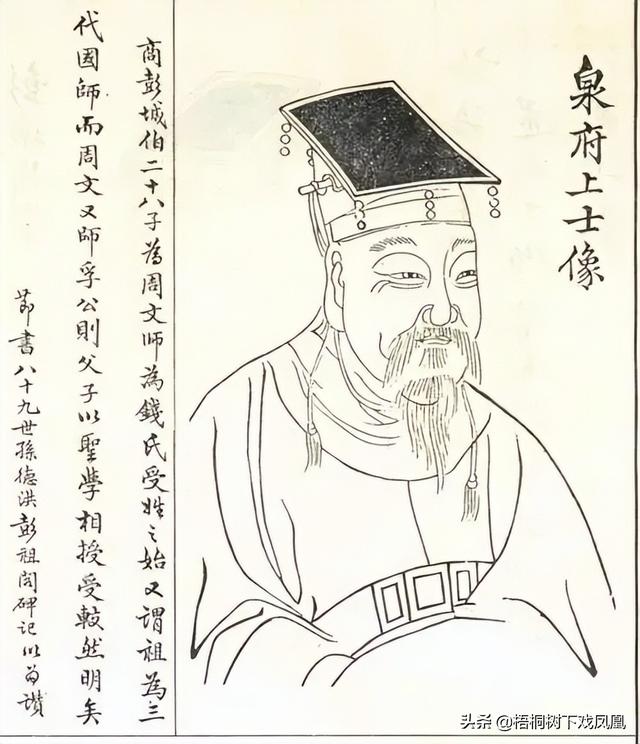 泉府上士像
商彭城伯二十八子為周文師為錢氏受姓之始又謂祖為三
代國師而周文又師孚公則父子以聖學相授受較然明矣
節書八十九世孫德洪彭祖閣碑記以當讚
头条 @梧桐树下戏凤凰